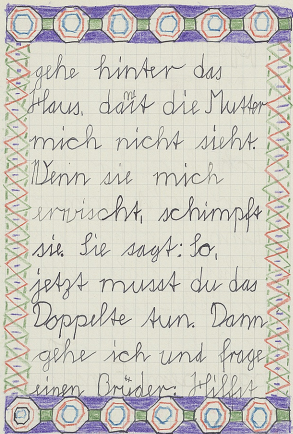 gehe hinter das
Haus, damit die Mutter
mich nicht sieht.
Wenn sie mich
erwischt, schimpft
sie. Sie sagt: So,
jetzt musst du das
Doppelte tun. Dann
gehe ich und frage
einen Brüder: Hilfst